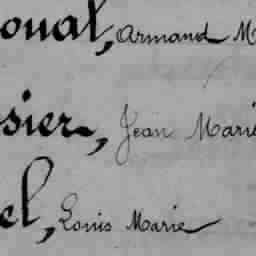 oual, Armand M
sier, Jean Marie
el, Louis Marie